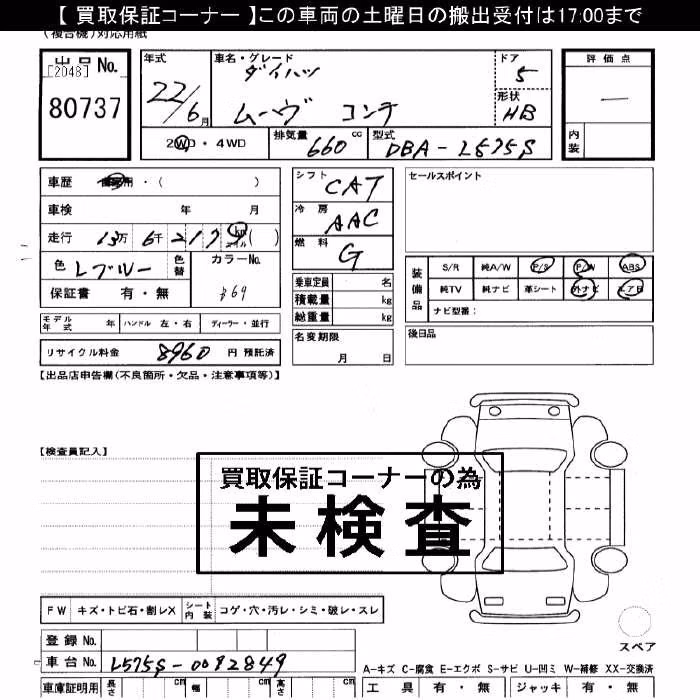 【 買取保証コーナー 】この車両の土曜日の搬出受付は17:00まで
(複合機)対応用紙
出品No.
[2048]
80737
年式
22/6月
車名・グレード
ダイハツ
ムーヴ コンテ
ドア
5
形状
HB
評価点
—
内装
2WD・4WD
排気量 660 cc
型式 DBA-L575S
車歴 ・( )
車検 年 月
走行 13万 6千 2179 km マイル ( )
色 Lブルー 色替
カラーNo.
保証書 有・無
シフト CAT
冷房 AAC
燃料 G
セールスポイント
乗車定員 名
積載量 kg
総重量 kg
装備品
S/R 純A/W P/S P/W ABS
純TV 純ナビ 革シート 外ナビ エアB
ナビ型番:
モデル年式 年 ハンドル 左・右 ディーラー・並行
名変期限
月 日
後日品
リサイクル料金 8960 円 預託済
【出品店申告欄(不良箇所・欠品・注意事項等)】
【検査員記入】
買取保証コーナーの為
未検査
FW キズ・トビ石・割レX
シート内装 コゲ・穴・汚レ・シミ・破レ・スレ
スペア
登録No.
車台No. L575S-0082849
A-キズ C-腐食 E-エクボ S-サビ U-凹ミ W-補修 XX-交換済
車庫証明用 長さ cm 幅 cm 高さ cm
工具 有・無 ジャッキ 有・無